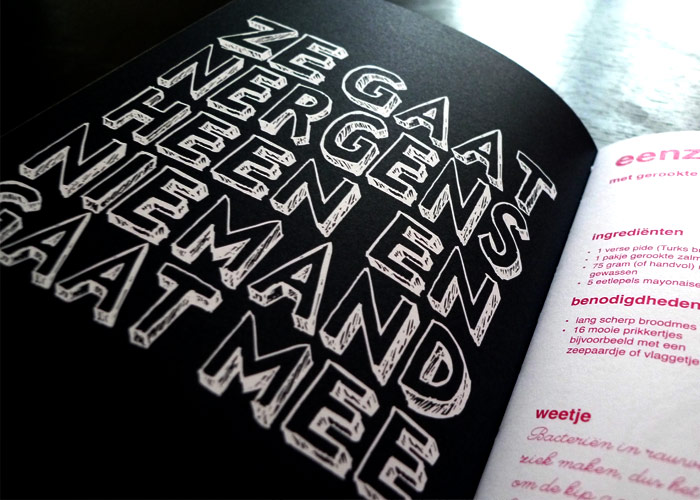 ZE GAAT
NERGENS
HEEN EN
NIEMAND
GAAT MEE
met gerookte
ingrediënten
• 1 verse pide (Turks
• 1 pakje gerookte
• 75 gram (of handvol)
gewassen
• 5 eetlepels mayonaise
benodigdheden
• lang scherp broodmes
• 16 mooie prikkertjes
bijvoorbeeld met een
zeepaardje of vlaggetje
weetje
Bacteriën in
ziek maken, dus
om de kip